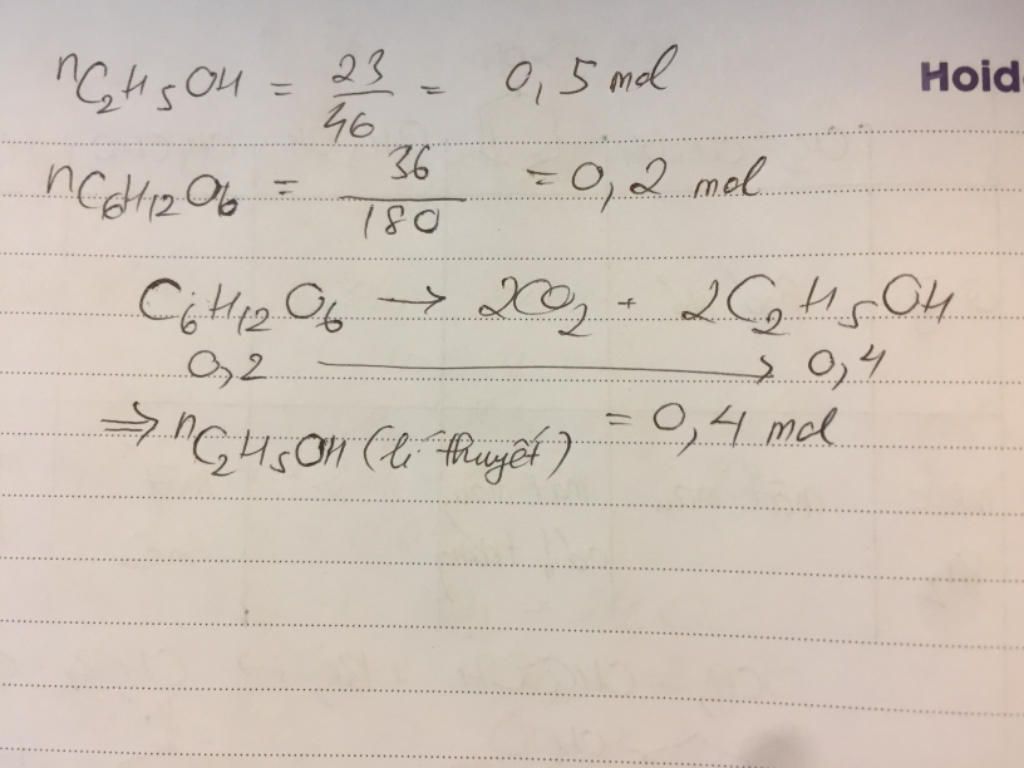 nC2H5OH = 23/46 = 0,5 mol
Hoid
nC6H12O6 = 36/180 = 0,2 mol
C6H12O6 → 2CO2 + 2C2H5OH
0,2 → 0,4
⇒ nC2H5OH (lí thuyết) = 0,4 mol